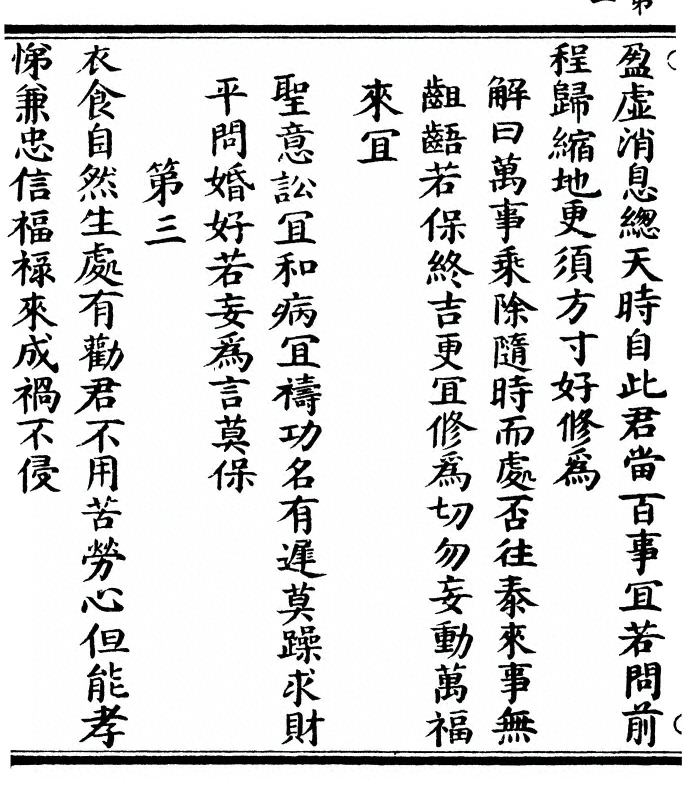 盈虛消息總天時自此君當百事冝若問前
程歸縮地更須方寸好修為
解曰萬事乘除隨時而處否往泰來事無
齟齬若保終吉更冝修為切勿妄動萬福
來冝
聖意訟冝和病冝禱功名有遲莫躁求財
平問婚好若妄為言莫保
第三
衣食自然生處有勸君不用苦勞心但能孝
悌兼忠信福祿來成禍不侵